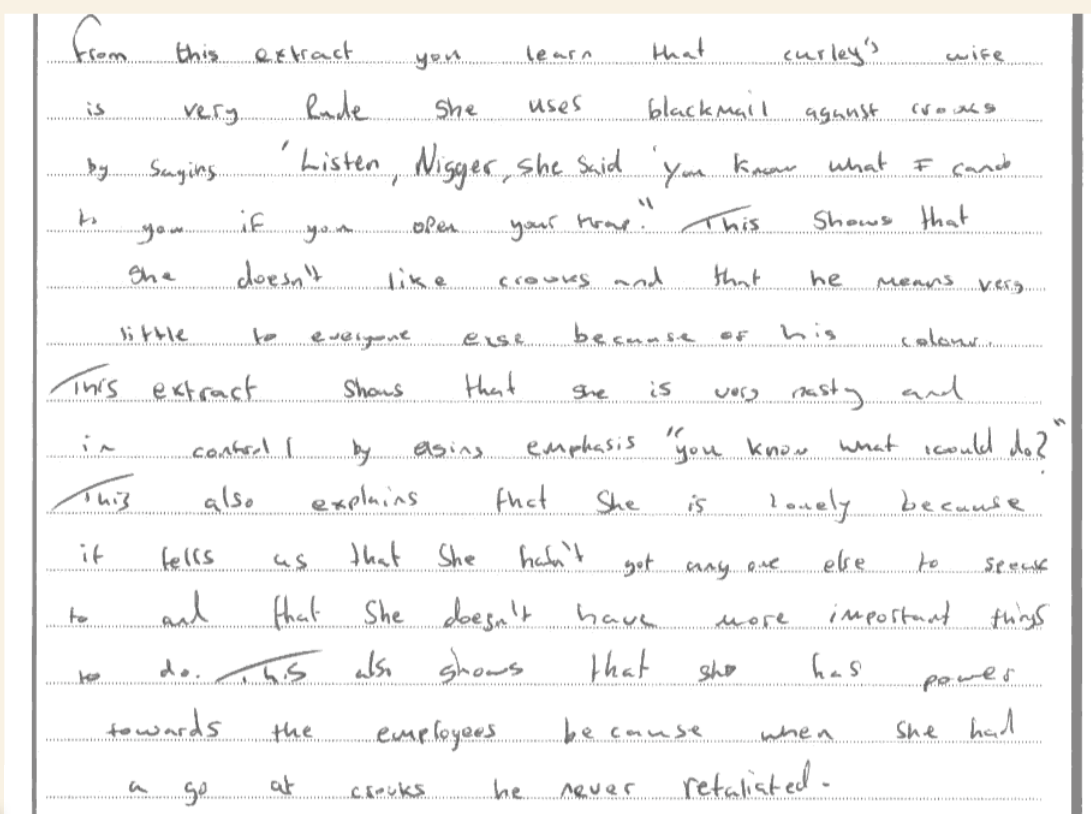 From this extract you learn that curley's wife
is very Rude She uses blackmail aganst crooks
by Saying 'Listen, Nigger, she said 'you know what I cando
to you if you open your trap." This Shows that
She doesn't like crouks and that he means very
little to everyone else because of his colour.
This extract Shows that she is very nasty and
in controll by using emphasis "you know what icould do?"
This also explains that She is lonely because
it tells us that She hasn't got any one else to speak
to and that She doesn't have more important things
to do. This also shows that she has power
towards the employees because when She had
a go at crouks he never retaliated.